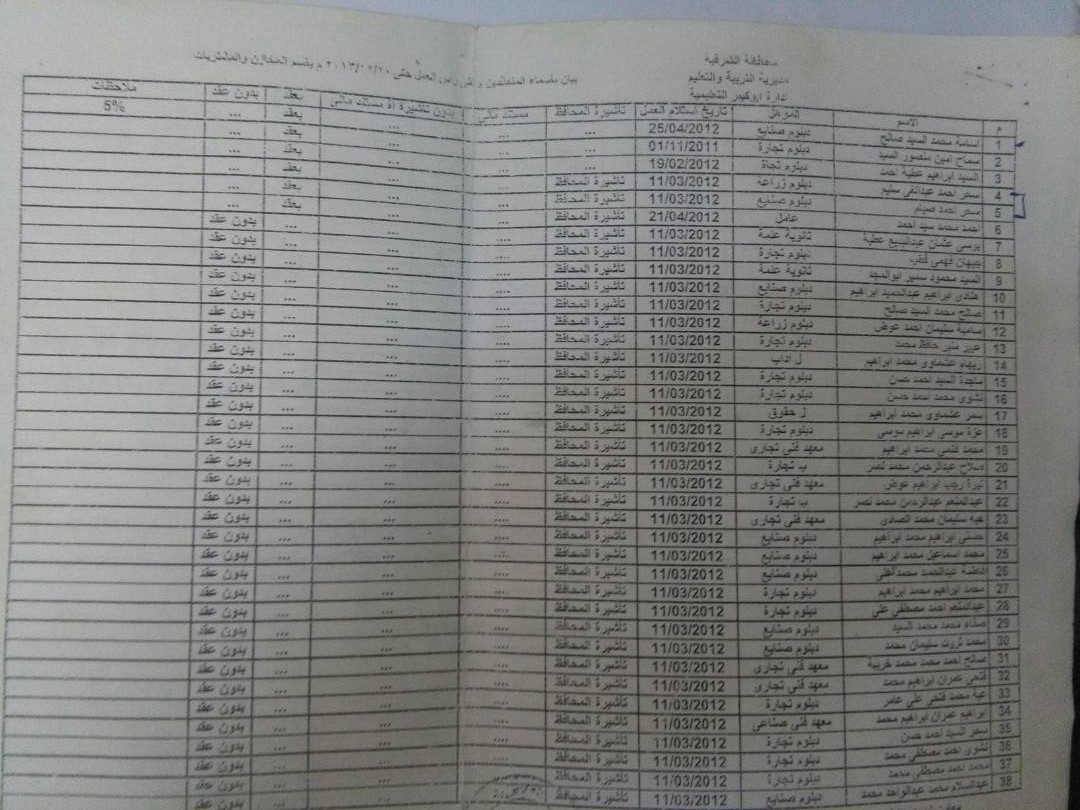 محافظة الشرقية
مديرية التربية والتعليم
ادارة ابوكبير التعليمية
بيان باسماء المتعاقدين العمل حتى م بقسم السفارى والمأموريات
م الاسم المؤهل تاريخ استلام العمل تأشيرة المحافظ مستند مالى بدون تأشيرة او مستند مالى بعقد بدون عقد ملاحظات
1 اسامة محمد السيد صالح دبلوم صنايع 25/04/2012 ... ... ... بعقد ... 5%
2 سماح امين منصور السيد دبلوم تجارة 01/11/2011 ... ... ... بعقد ...
3 السيد ابراهيم عطية احمد 19/02/2012 ... ... ... بعقد ...
4 سحر احمد سليم دبلوم زراعة 11/03/2012 تأشيرة المحافظ ... ... بعقد ...
5 سحر احمد دبلوم صنايع 11/03/2012 تأشيرة المحافظ ... ... بعقد ...
6 احمد محمد سيد احمد عامل 21/04/2012 تأشيرة المحافظ ... ... ... بدون عقد
7 عثمان عبدالبديع عطية ثانوية عامة 11/03/2012 تأشيرة المحافظ ... ... ... بدون عقد
8 جيهان فهمى دبلوم تجارة 11/03/2012 تأشيرة المحافظ ... ... ... بدون عقد
9 السيد محمود سمير ابوالمجد ثانوية عامة 11/03/2012 تأشيرة المحافظ ... ... ... بدون عقد
10 ابراهيم عبدالحميد ابراهيم دبلوم صنايع 11/03/2012 تأشيرة المحافظ ... ... ... بدون عقد
11 صالح محمد السيد صالح دبلوم تجارة 11/03/2012 تأشيرة المحافظ ... ... ... بدون عقد
12 سامية سليمان احمد عوض دبلوم زراعة 11/03/2012 تأشيرة المحافظ ... ... ... بدون عقد
13 عبير منير حافظ محمد دبلوم تجارة 11/03/2012 تأشيرة المحافظ ... ... ... بدون عقد
14 ريهام عشماوى محمد ابراهيم ل اداب 11/03/2012 تأشيرة المحافظ ... ... ... بدون عقد
15 ماجدة السيد احمد حسن دبلوم تجارة 11/03/2012 تأشيرة المحافظ ... ... ... بدون عقد
16 نشوى محمد احمد حسن دبلوم تجارة 11/03/2012 تأشيرة المحافظ ... ... ... بدون عقد
17 سمر عشماوى محمد ابراهيم ل حقوق 11/03/2012 تأشيرة المحافظ ... ... ... بدون عقد
18 عزة موسى ابراهيم موسى دبلوم تجارة 11/03/2012 تأشيرة المحافظ ... ... ... بدون عقد
19 محمد فتحى محمد ابراهيم معهد فنى تجارى 11/03/2012 تأشيرة المحافظ ... ... ... بدون عقد
20 عبدالرحمن محمد نصر ب تجارة 11/03/2012 تأشيرة المحافظ ... ... ... بدون عقد
21 رجب ابراهيم عوض معهد فنى تجارى 11/03/2012 تأشيرة المحافظ ... ... ... بدون عقد
22 عبدالمنعم عبدالرحمن محمد نصر ب تجارة 11/03/2012 تأشيرة المحافظ ... ... ... بدون عقد
23 هبه سليمان محمد معهد فنى تجارى 11/03/2012 تأشيرة المحافظ ... ... ... بدون عقد
24 حسنى ابراهيم محمد ابراهيم دبلوم صنايع 11/03/2012 تأشيرة المحافظ ... ... ... بدون عقد
25 محمد اسماعيل محمد ابراهيم دبلوم صنايع 11/03/2012 تأشيرة المحافظ ... ... ... بدون عقد
26 فاطمه عبدالحميد دبلوم صنايع 11/03/2012 تأشيرة المحافظ ... ... ... بدون عقد
27 محمد ابراهيم محمد ابراهيم دبلوم تجارة 11/03/2012 تأشيرة المحافظ ... ... ... بدون عقد
28 عبدالمنعم احمد مصطفى على دبلوم تجارة 11/03/2012 تأشيرة المحافظ ... ... ... بدون عقد
29 محمد محمد السيد دبلوم صنايع 11/03/2012 تأشيرة المحافظ ... ... ... بدون عقد
30 محمد ثروت سليمان محمد دبلوم صنايع 11/03/2012 تأشيرة المحافظ ... ... ... بدون عقد
31 صالح احمد محمد محمد معهد فنى تجارى 11/03/2012 تأشيرة المحافظ ... ... ... بدون عقد
32 فتحى عمران ابراهيم محمد معهد فنى تجارى 11/03/2012 تأشيرة المحافظ ... ... ... بدون عقد
33 محمد فتحى على عامر دبلوم تجارة 11/03/2012 تأشيرة المحافظ ... ... ... بدون عقد
34 ابراهيم عمران ابراهيم محمد معهد فنى صناعى 11/03/2012 تأشيرة المحافظ ... ... ... بدون عقد
35 سحر السيد احمد حسن دبلوم تجارة 11/03/2012 تأشيرة المحافظ ... ... ... بدون عقد
36 نشوى احمد مصطفى محمد دبلوم تجارة 11/03/2012 تأشيرة المحافظ ... ... ... بدون عقد
37 محمد احمد مصطفى محمد دبلوم تجارة 11/03/2012 تأشيرة المحافظ ... ... ... بدون عقد
38 عبدالسلام محمد عبدالواحد محمد دبلوم صنايع 11/03/2012 تأشيرة المحافظ ... ... ... بدون عقد